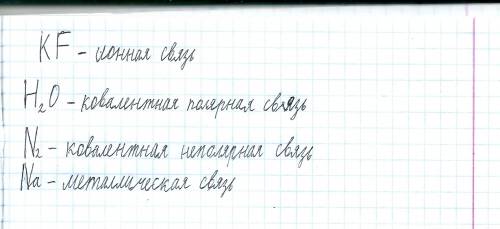 KF - ионная связь
H₂O - ковалентная полярная связь
N₂ - ковалентная неполярная связь
Na - металлическая связь